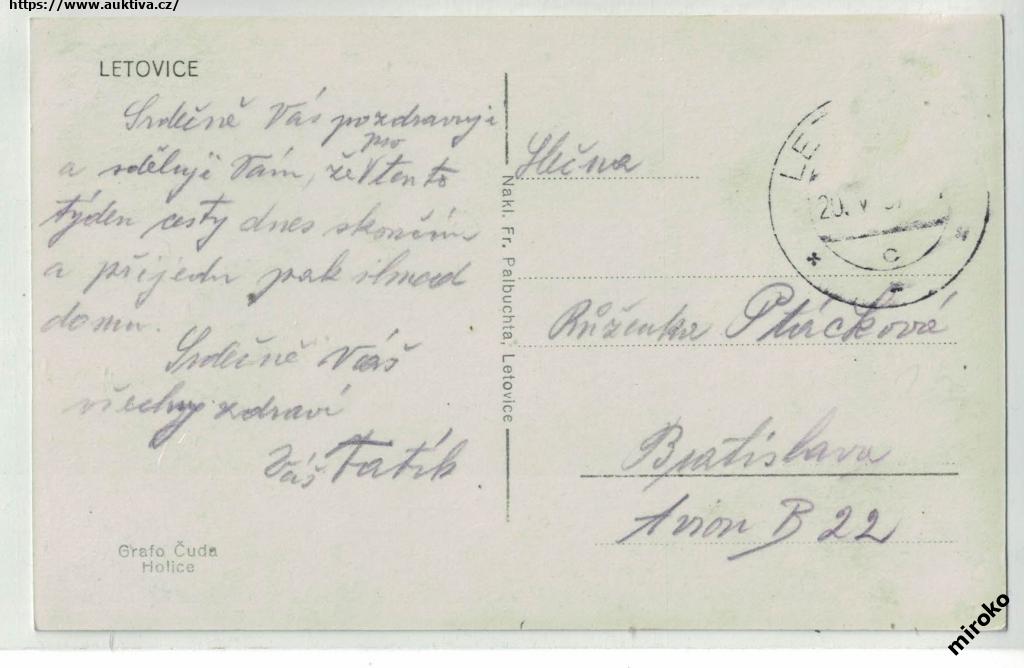 https://www.auktiva.cz/
LETOVICE
Srdečně Vás pozdravuji
pro
a sděluji Vám, že tento
týden cesty dnes skončím
a přijedu pak ihned
domu.
Srdečně Váš
všechny zdraví
Váš Tatík
Grafo Čuda
Holice
Nakl. Fr. Palbuchta, Letovice
LE
20. V
C
Slečna
Růženka Ptáčková
Bratislava
Avion B 22
miroko